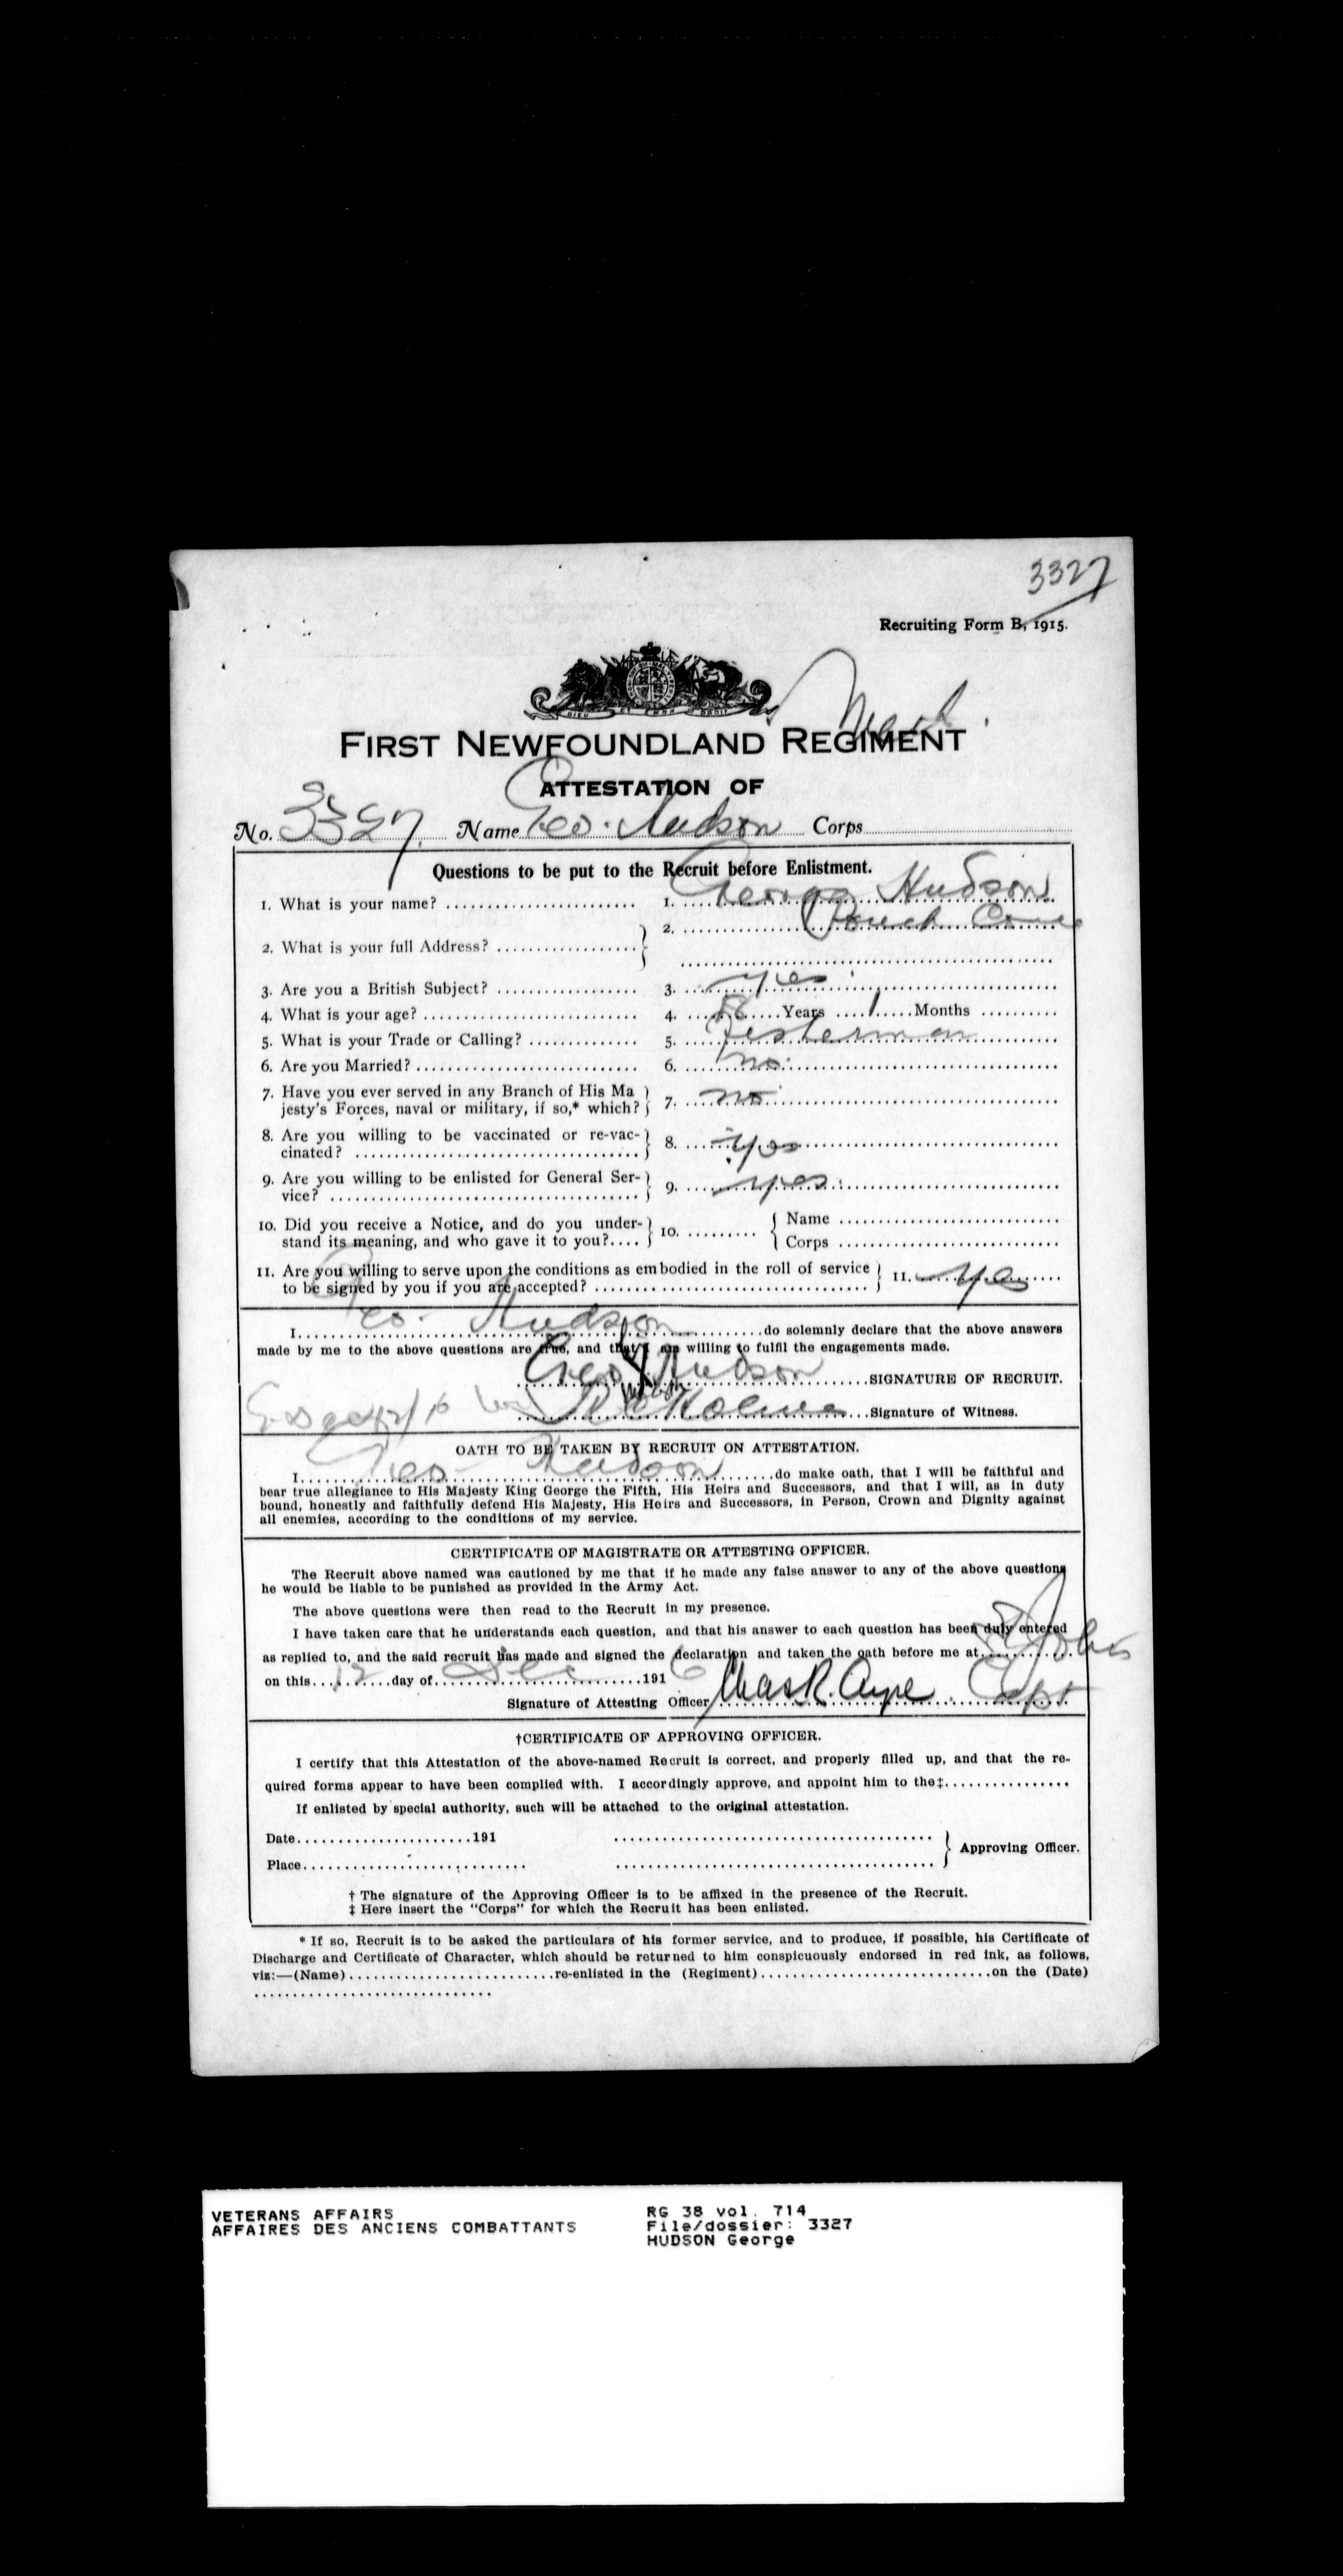 3327
Recruiting Form B, 1915.
DIEU ET MON DROIT
FIRST NEWFOUNDLAND REGIMENT
ATTESTATION OF
No. 3327 Name Geo. Hudson Corps
Questions to be put to the Recruit before Enlistment.
1. What is your name? 1. George Hudson
2. What is your full Address? 2. Pouch Cove
3. Are you a British Subject? 3. yes
4. What is your age? 4. Years 1 Months
5. What is your Trade or Calling? 5. Fisherman
6. Are you Married? 6. no
7. Have you ever served in any Branch of His Ma
jesty's Forces, naval or military, if so,* which? 7. no
8. Are you willing to be vaccinated or re-vac-
cinated? 8. yes
9. Are you willing to be enlisted for General Ser-
vice? 9. yes
10. Did you receive a Notice, and do you under-
stand its meaning, and who gave it to you? 10. Name
Corps
11. Are you willing to serve upon the conditions as embodied in the roll of service
to be signed by you if you are accepted? 11. yes
I Geo. Hudson do solemnly declare that the above answers
made by me to the above questions are true, and that I am willing to fulfil the engagements made.
Geo X Hudson SIGNATURE OF RECRUIT.
mark
Signature of Witness.
OATH TO BE TAKEN BY RECRUIT ON ATTESTATION.
I Geo Hudson do make oath, that I will be faithful and
bear true allegiance to His Majesty King George the Fifth, His Heirs and Successors, and that I will, as in duty
bound, honestly and faithfully defend His Majesty, His Heirs and Successors, in Person, Crown and Dignity against
all enemies, according to the conditions of my service.
CERTIFICATE OF MAGISTRATE OR ATTESTING OFFICER.
The Recruit above named was cautioned by me that if he made any false answer to any of the above questions
he would be liable to be punished as provided in the Army Act.
The above questions were then read to the Recruit in my presence.
I have taken care that he understands each question, and that his answer to each question has been duly entered
as replied to, and the said recruit has made and signed the declaration and taken the oath before me at St Johns
on this 12 day of Dec 1916
Signature of Attesting Officer Chas R. Ayre Capt
†CERTIFICATE OF APPROVING OFFICER.
I certify that this Attestation of the above-named Recruit is correct, and properly filled up, and that the re-
quired forms appear to have been complied with. I accordingly approve, and appoint him to the‡
If enlisted by special authority, such will be attached to the original attestation.
Date 191
Place
Approving Officer.
† The signature of the Approving Officer is to be affixed in the presence of the Recruit.
‡ Here insert the "Corps" for which the Recruit has been enlisted.
* If so, Recruit is to be asked the particulars of his former service, and to produce, if possible, his Certificate of
Discharge and Certificate of Character, which should be returned to him conspicuously endorsed in red ink, as follows,
viz:—(Name) re-enlisted in the (Regiment) on the (Date)
VETERANS AFFAIRS
AFFAIRES DES ANCIENS COMBATTANTS
RG 38 vol. 714
File/dossier: 3327
HUDSON George